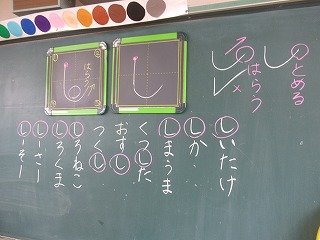 し
とめる
し
はらう
×
し
し
はらう
しいたけ
しか
しまうま
くつした
おすし
つくし
しろねこ
しろくま
しーさー
しーそー